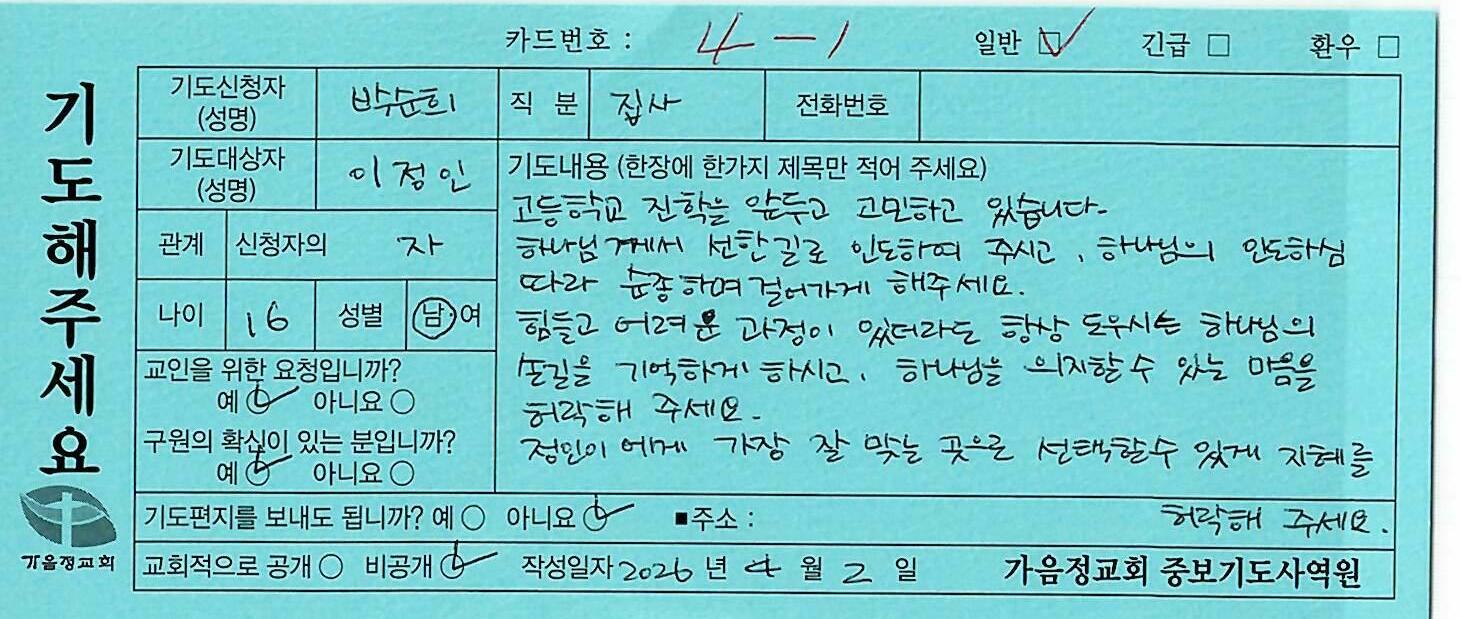 카드번호 : 4-1 일반 ☑ 긴급 □ 환우 □
기도해주세요
기도신청자 (성명) 박순희 직 분 집사 전화번호
기도대상자 (성명) 이정인
관계 신청자의 자
나이 16 성별 남 여
교인을 위한 요청입니까?
예 아니요
구원의 확신이 있는 분입니까?
예 아니요
기도내용 (한장에 한가지 제목만 적어 주세요)
고등학교 진학을 앞두고 고민하고 있습니다.
하나님께서 선한길로 인도하여 주시고, 하나님의 인도하심
따라 순종하며 걸어가게 해주세요.
힘들고 어려운 과정이 있더라도 항상 도우시는 하나님의
손길을 기억하게 하시고, 하나님을 의지할 수 있는 마음을
허락해 주세요.
정인이에게 가장 잘 맞는 곳으로 선택할수 있게 지혜를
허락해 주세요.
기도편지를 보내도 됩니까? 예 아니요 ■주소 :
교회적으로 공개 비공개 작성일자 2026 년 4 월 2 일 가음정교회 중보기도사역원
가음정교회